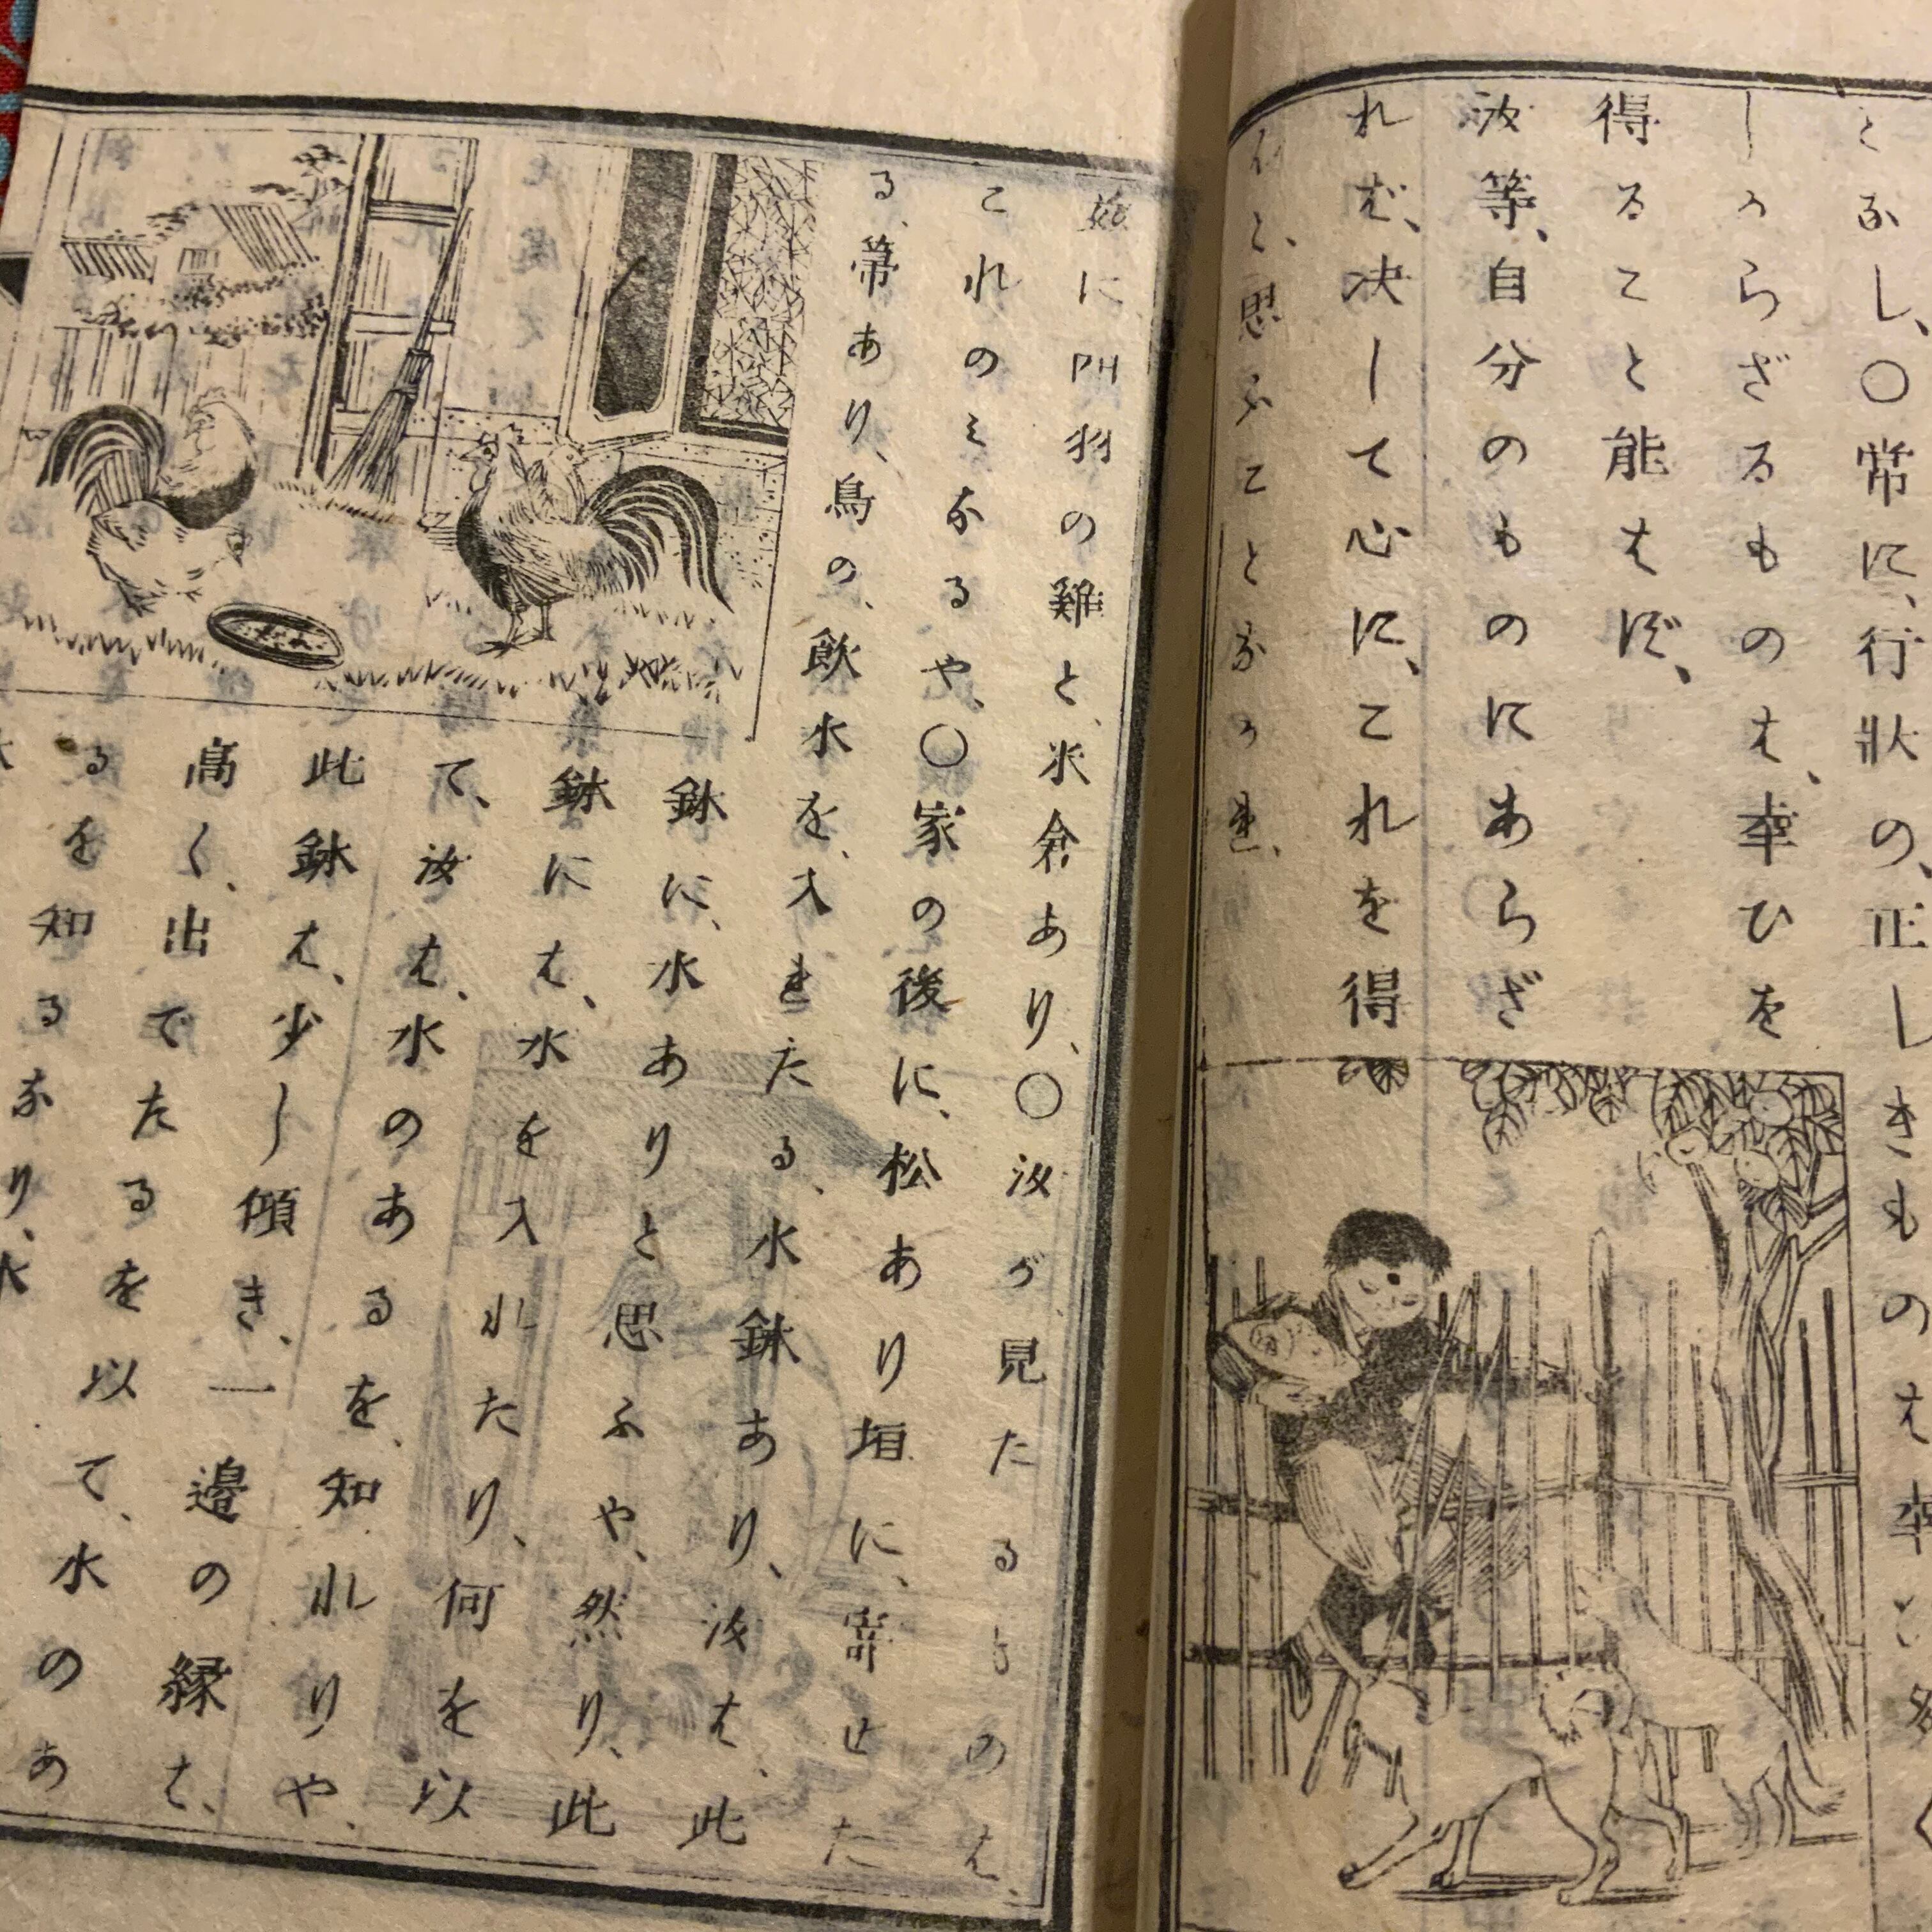 となし、〇常に、行状の、正しきものは幸ひ多く
しからざるものは、幸ひを
得ること能はず、
汝等、自分のものにあらざ
れば、决して心に、これを得
んと、思ふことなかれ、
茲に四羽の雞と、米倉あり、〇汝が見たるものは、
これのミなるや、〇家の後に、松あり垣に、寄せた
る、箒あり、鳥の、飲水を、入れたる、水鉢あり、汝は、此
鉢に、水ありと思ふや、然り、此
鉢には、水を入れたり、何を以
て、汝は、水のあるを、知れりや、
此鉢は、少し傾き、一邊の縁は、
高く、出でたるを以て、水のあ
るを知るなり、